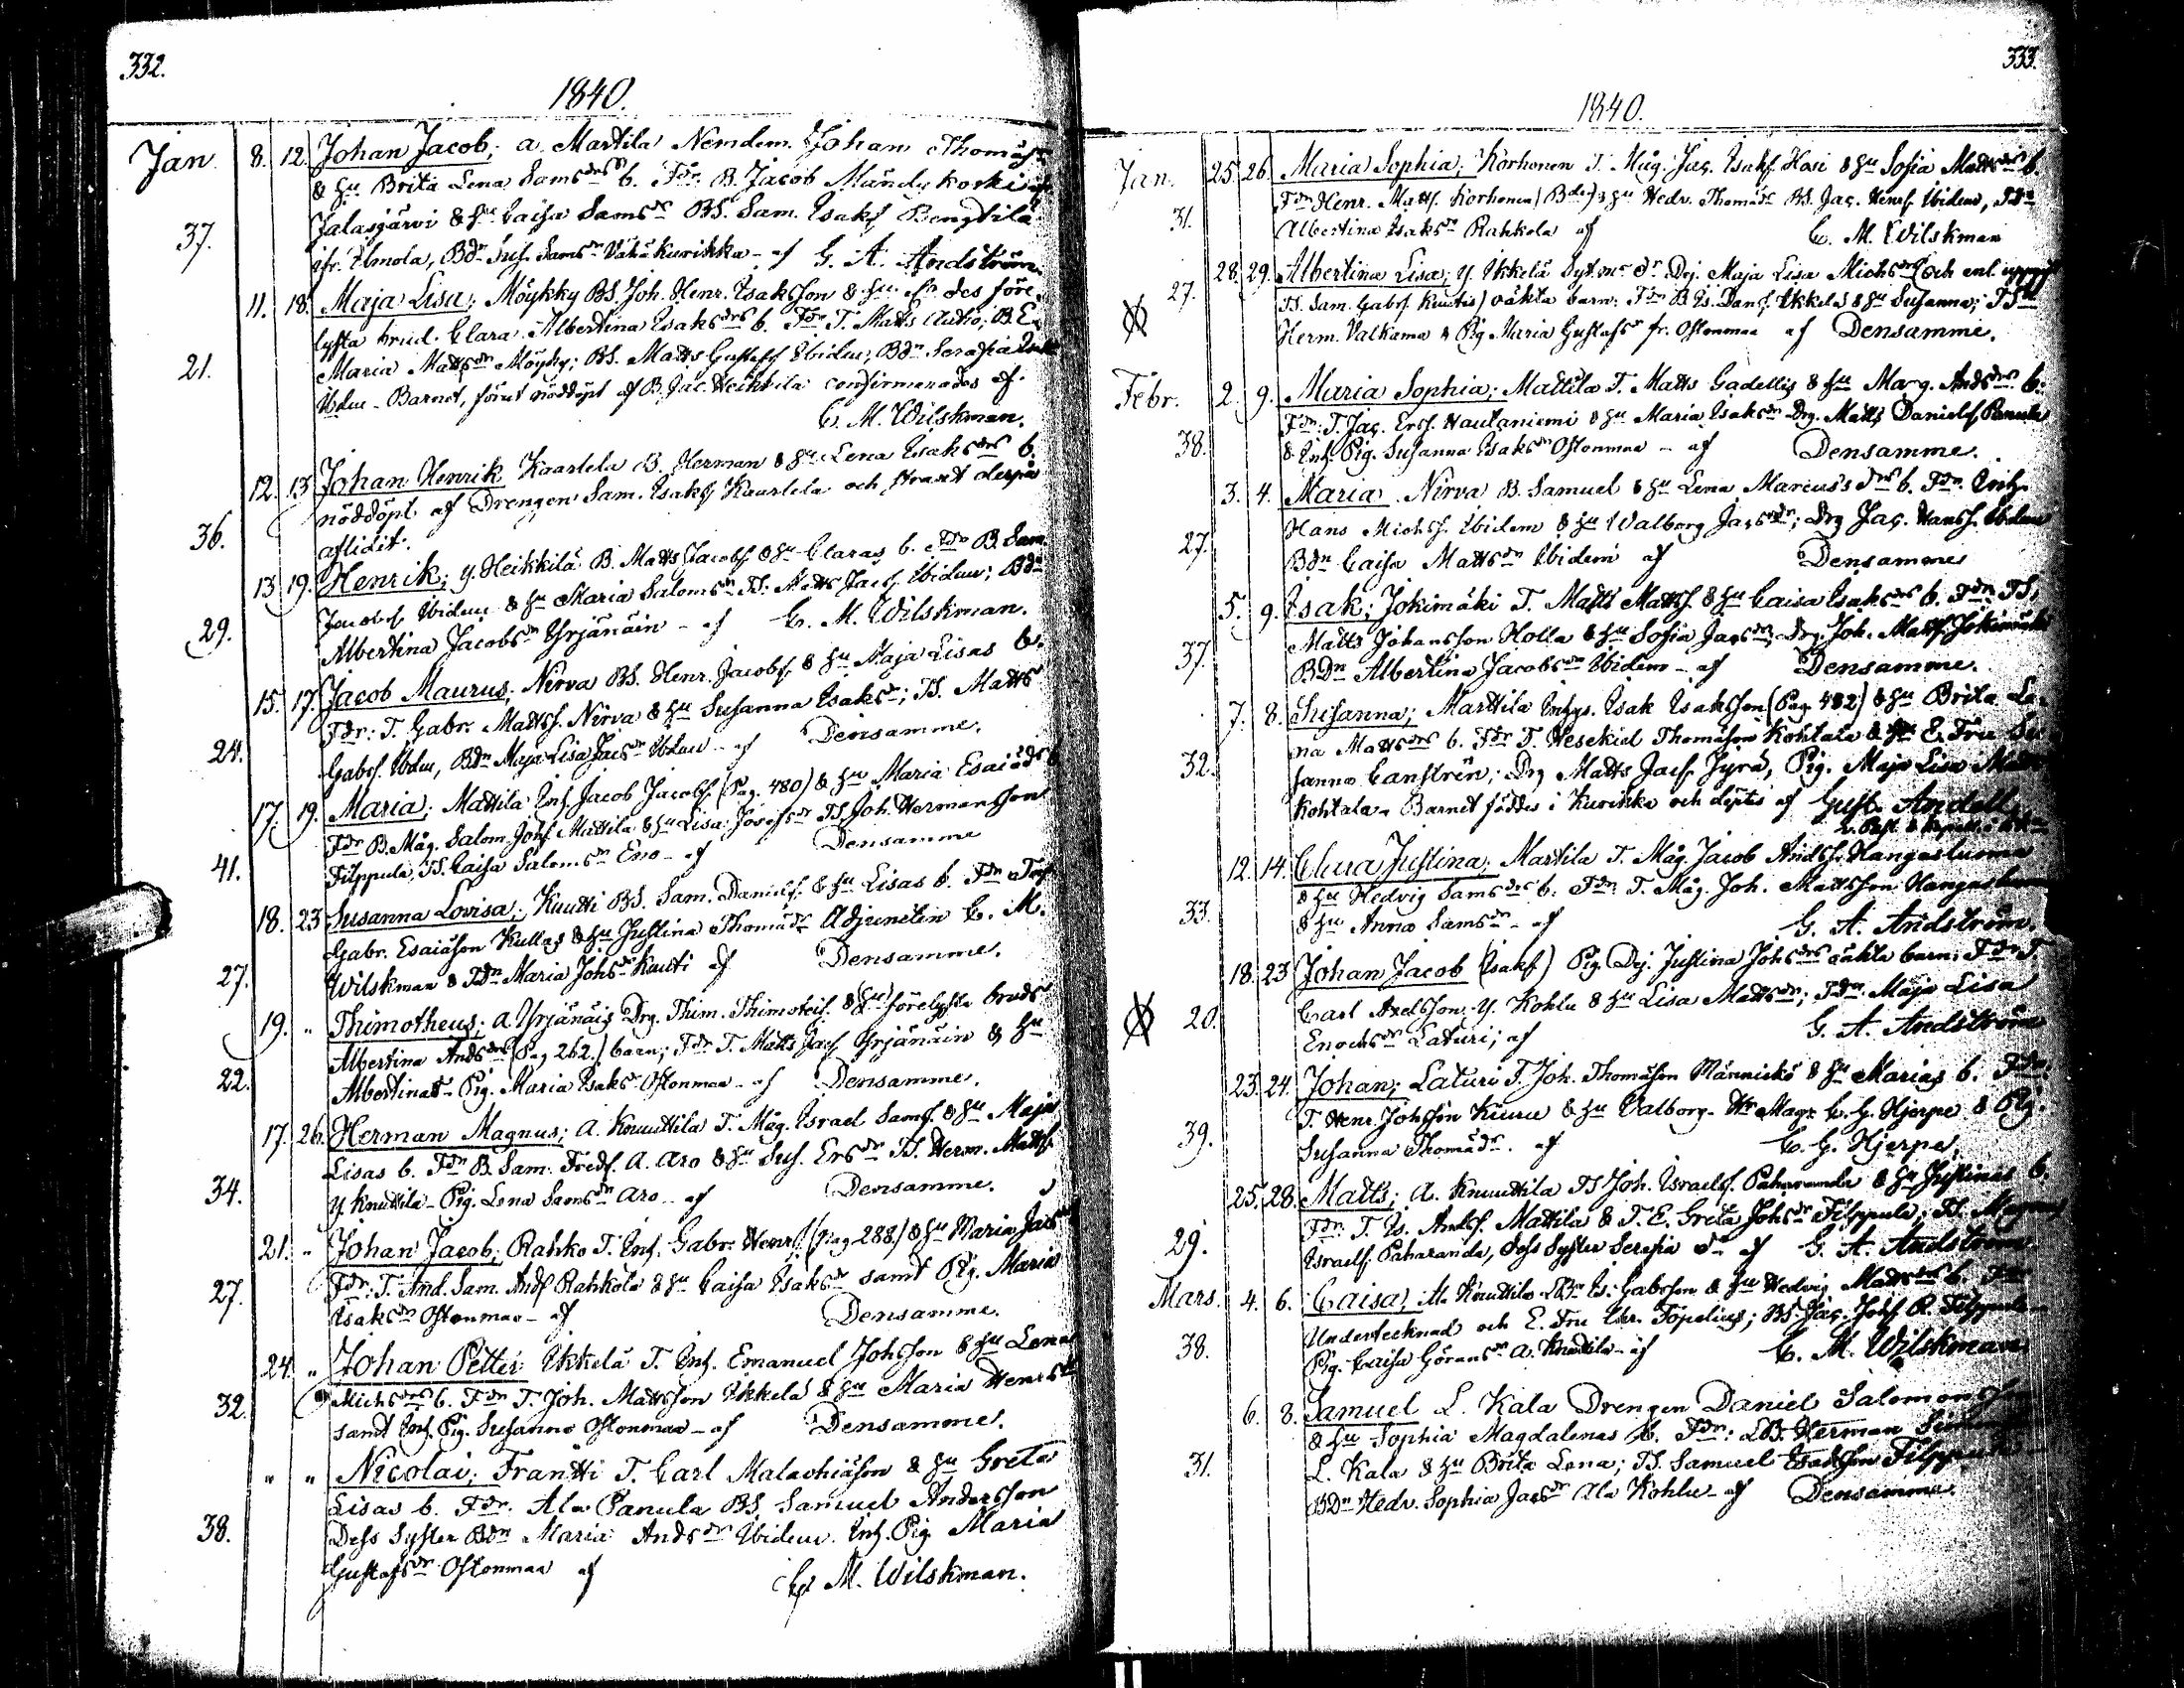 332.
1840.
Jan 8. 12. Johan Jacob; a. Martila Nemdem. Johan Thomäs
& Hu Brita Lena Samsdrs b. Fdr: B. Jacob Mändykoski
Jalasjärvi & Hu Caisa Samsdr BS. Sam. Isaks Bengtilä
37. ifr. Ilmola, Bdr Sus. Samsdr Vähäkurikka - af G. A. Andström.
11. 18. Maja Lisa; Möykky BS. Joh. Henr. Isaksson & des före-
lysta brud Clara Albertina Isaksdrs b. Fdr T. Matts Autio; B. E.
21. Maria Mattsdr Möyky; BS. Matts Gustafs Ibidem; Bdr Serafia
Ibdm - Barnet, förut nöddöpt af B. Jac. Heikkila confirmerades af
C. M. Wilskman.
12. 13 Johan Henrik Kaarlela B. Herman & Hu Lena Isaksdrs b.
nöddöpt af Drengen Sam. Isaks Kaarlela och straxt derpå
36. aflidit.
13 19. Henrik; y. Heikkilä B. Matts Jacobs & Hu Claras b. Fdr B. Sam.
Jacobs Ibidem & Hu Maria Salomsdr TS. Matts Jacs. Ibidem; Bdr
29. Albertina Jacobsdr Yrjänäin - af C. M. Wilskman.
15. 17. Jacob Maurus; Nirva BS. Henr. Jacobs. & Hu Maja Lisas b.
Fdr: T. Gabr. Mattss. Nirva & Hu Susanna Isaksdr; TS. Matts
24. Gabrs. Ibdm, Bdr Maja Lisa Jacsdr Ibdm - af Densamme.
17. 19. Maria; Mattila Inh. Jacob Jacobs. (Pag. 480) & Hu Maria Esaiädr b
Fdr B. Måg. Salom. Johs Mattila & Hu Lisa Josefsdr TS Joh. Hermansson
41. Filppula, TS. Caisa Salomsdr Eno - af Densamme
18. 23 Susanna Lovisa; Knutti BS. Sam. Daniels. & Hu Lisas b. Fdr
Gabr. Esaiäson Kullas & Hu Justina Thomädr Adjuncten C. M.
27. Wilskman & Tdr Maria Johsdr Knuti af Densamme.
19. " Thimotheus; a. Yrjänäis Drg. Thim. Thimoteis. & (Hu) förelysta bruds
Albertina Andsdrs (Pag 262.) barn; Fdr T. Matts Jacs Yrjänäin & Hu
22. Albertina - Pig. Maria Isaksdr Ostonmaa - af Densamme.
17. 26. Herman Magnus; a. Knuuttila T. Måg. Israel Sams. & Hu Maja
Lisas b. Fdr B. Sam. Freds. A. Aro & Hu Sus. Ersdr TS. Herm. Matts.
34. y Knuttila - Pig. Lena Samsdr Aro - af Densamme.
21. " Johan Jacob; Rahko T. Inh. Gabr. Henrs. (pag 288.) & Hu Maria Jacsdrs
Fdr: T. And. Sam. Ands Rahkola & Hu Caisa Isaksdr samt Pig. Maria
27. Isaksdr Ostonmaa - af Densamme.
24. " Johan Petter Ikkelä T. Inh. Emanuel Johsson & Hu Lena
Michsdrs b. Fdr T. Joh. Mattsson Ikkelä & Hu Maria Henrsdr
32. samt Inh. Pig. Susanna Ostonmaa - af Densamme.
" " Nicolai; Frantti T. Carl Malachiäson & Hu Greta
Lisas b. Fdr: Ala Panula BS Samuel Andersson
Dess Syster Bdr Maria Andsdr Ibidem. Inh. Pig Maria
38. Gustafsdr Ostonmaa af C. M. Wilskman.
333.
1840.
Jan. 25. 26. Maria Sophia; Korhonen T. Måg. Jac. Isaks. Hasi & Hu Sofia Mattsdrs b.
Fdr Henr. Matts. Korhonen (Bdr) & Hu Hedv. Thomädr BS. Jac. Henrs. Ibidem, Tdr
31. Albertina Isaksdr Rahkola af C. M. Wilskman
28. 29. Albertina Lisa; y. Ikkelä Dej. Maja Lisa Michsdrs (och enl. uppg.
27. TS. Sam. Gabrs. Knutis) oäkta barn: Fdr B Es. Dans. Ikkelä & Hu Susanna; TS
Herm. Valkama & Pig Maria Gustafsdr fr. Ostonmaa af Densamme.
Febr. 2. 9. Maria Sophia; Mattila T. Matts Gadellis & Hu Marg. Andsdrs b.
Fdr: T. Jac. Ers. Hautaniemi & Hu Maria Isaksdr Drg. Matts Daniels. Panula
38. & Inh. Pig. Susanna Isaksdr Ostonmaa - af Densamme.
3. 4. Maria Nirva B. Samuel & Hu Lena Marcus's drs b. Fdr: Inh.
Hans Michs. Ibidem & Hu Walborg Jacsdr; Drg Jac. Hanss. Ibidem
27. Bdr Caisa Mattsdr Ibidem af Densamme
5. 9. Isak; Jokimäki T. Matts Matts. & Hu Caisa Isaksdrs b. Fdr TS,
Matts Johansson Holla & Hu Sofia Jacsdr; Drg. Joh. Matts. Jokimäki
37. BDr Albertina Jacobsdr Ibidem - af Densamme.
7. 8. Susanna; Marttila Inhys. Isak Isaksson (Pag 482) & Hu Brita Le-
na Mattsdrs b. Fdr T. Hesekiel Thomäson Kohtala & E. Fru Su-
32. sanna Canstrén; Drg Matts Jacs. Jyrä, Pig. Maja Lisa
Kohtala - Barnet föddes i Kurikka och döptes af Gust. Andell
12. 14. Clara Justina; Martila T. Måg. Jacob Andss. Hangasluoma
& Hu Hedvig Samsdrs b. Fdr: T. Måg. Joh. Mattsson Hangasluoma
33. & Hu Anna Samsdr - af G. A. Andström.
18. 23 Johan Jacob (Isaks) Pig. Dej. Justina Johsdrs oäkta barn; Fdr T
20. Carl Axelsson Y. Kohlu & Hu Lisa Mattsdr; Tdr. Maja Lisa
Enochsdr Laturi; af G. A. Andström
23. 24. Johan; Laturi T. Joh. Thomäson Männickö & Hu Marias b. Fdr:
T. Henr. Johsson Kiuru & Hu Valborg - Hr Mag: C. G. Hjerpe & Pig.
39. Susanna Thomädr. af C. G. Hjerpe.
25. 28. Matts; A. Knuuttila TS Joh. Israels. Paharanda & Hu Justinas b.
Fdr: T. Es. Ands. Mattila & T. E. Greta Johsdr Filppula; TS. Magnus
29. Israels. Paharanda, dess Syster Serafia af G. A. Andström
Mars. 4. 6. Caisa; A. Knuttila Es. Gabrsson & Hu Hedvig Mattsdrs b. Fdr
Undertecknad och E. Fru Chr. Topelius; BS. Jac. Johs R. Filppula
38. Pig. Caisa Göransdr A. Knuttila - af C. M. Wilskman
6. 8. Samuel L. Kala Drengen Daniel Salomonsson
& Hu Sophia Magdalenas b. Fdr: Herman
31. L. Kala & Hu Brita Lena; TS. Samuel Isaksson Filppula
BDr Hedv. Sophia Jacsdr Ala Kohlu - af Densamme.